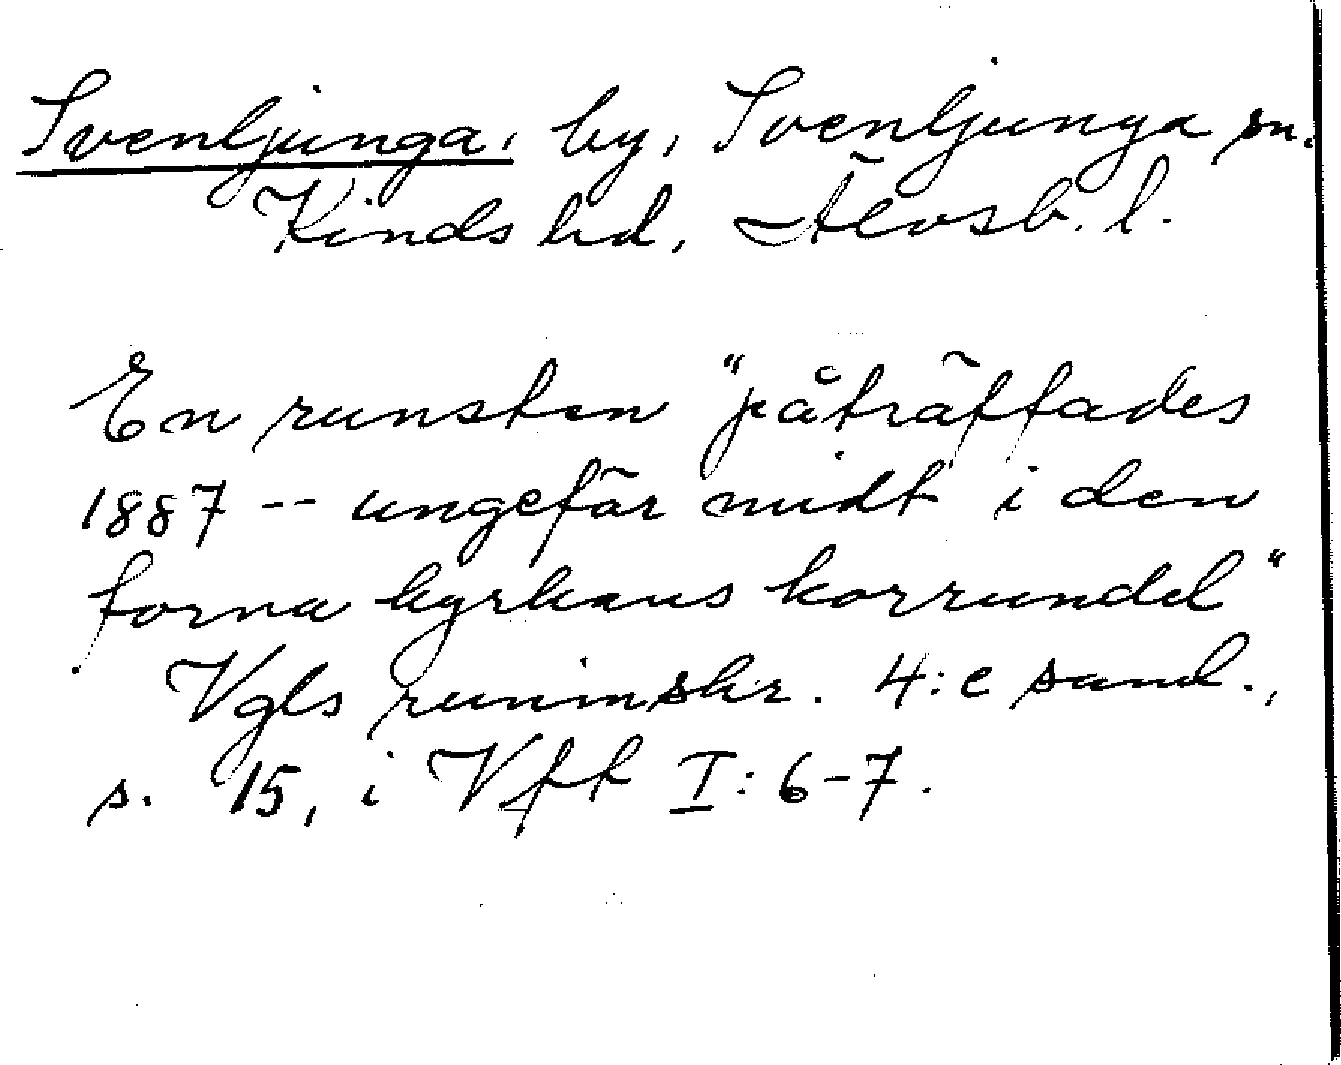 Svenljunga, by, Svenljunga sn.
Kinds hd, Älvsb. l.
En runsten "påträffades
1887 -- ungefär midt i den
forna kyrkans korrundel"
Vgls runinskr. 4:e saml.,
s. 15, i Vfft I:6-7.